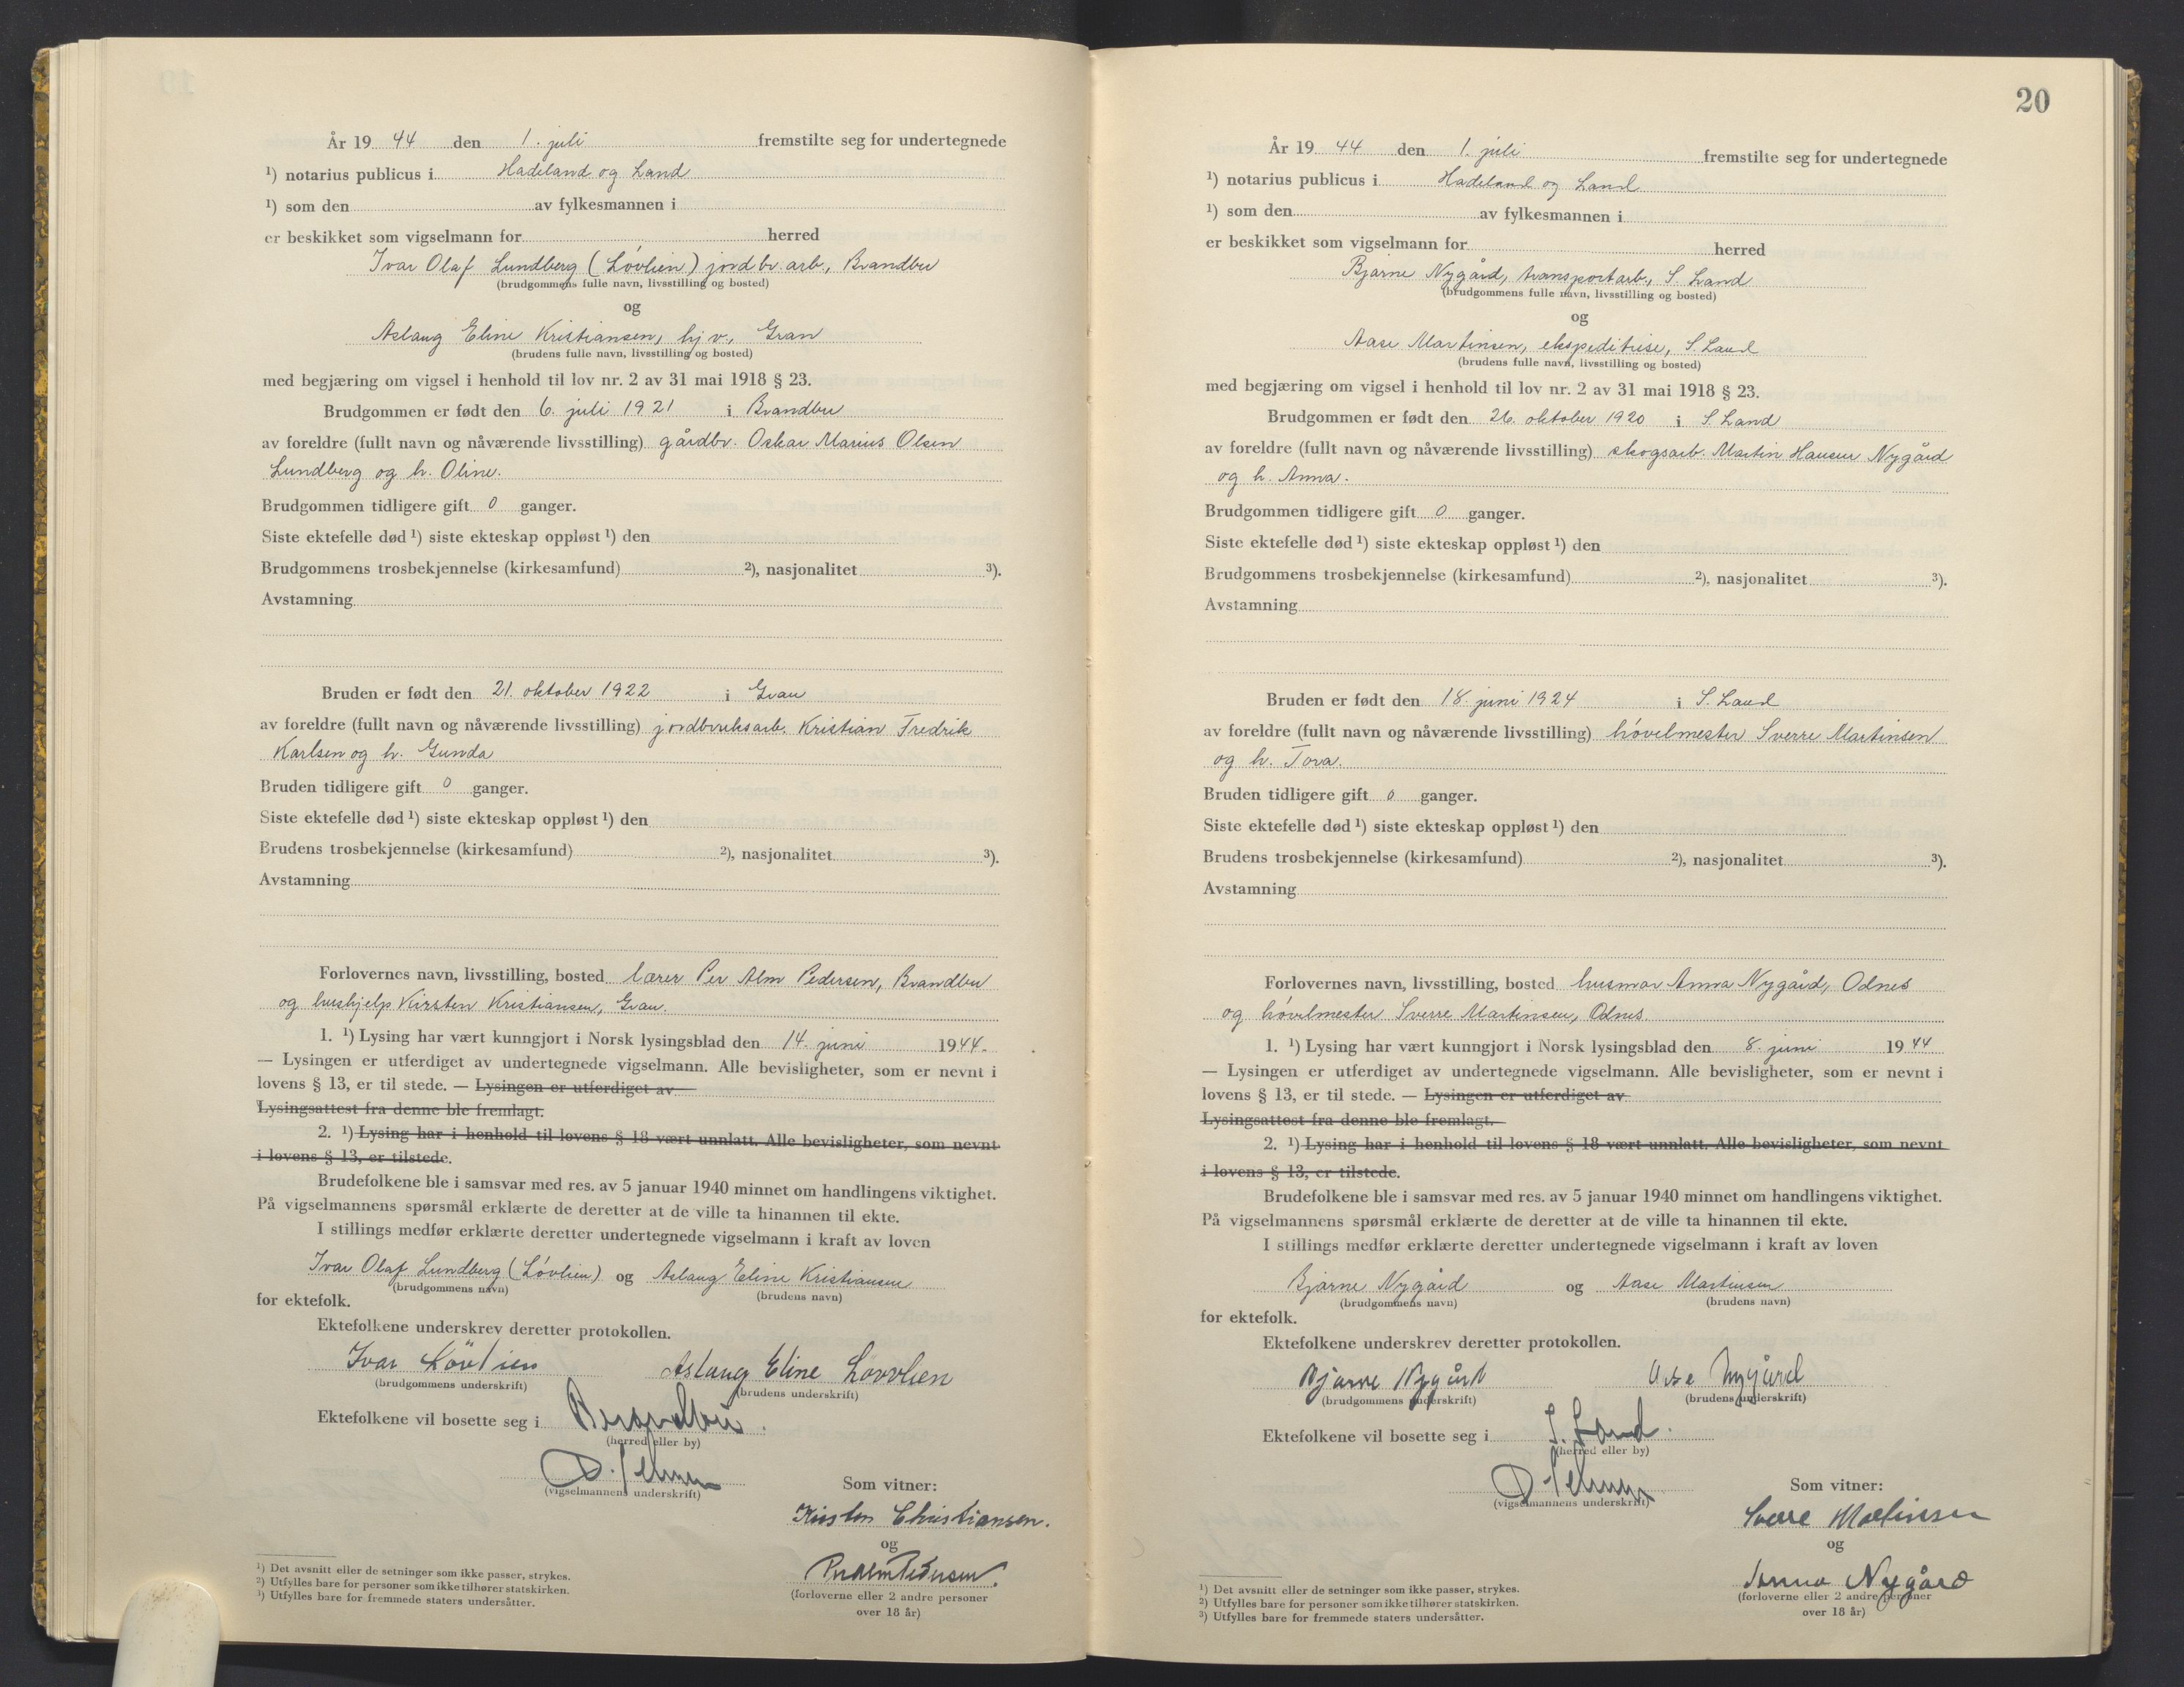 År 19 44 den 1. juli fremstilte seg for undertegnede
¹) notarius publicus i Hadeland og Land
¹) som den av fylkesmannen i
er beskikket som vigselmann for herred
Ivar Olaf Lundberg (Lövlien) jordbr. arb., Brandbu
(brudgommens fulle navn, livsstilling og bosted)
og
Aslaug Eline Kristiansen, hj v., Gran
(brudens fulle navn, livsstilling og bosted)
med begjæring om vigsel i henhold til lov nr. 2 av 31 mai 1918 § 23.
Brudgommen er født den 6. juli 1921 i Brandbu
av foreldre (fullt navn og nåværende livsstilling) gårdbr. Oskar Marius Olsen
Lundberg og h. Oline.
Brudgommen tidligere gift 0 ganger.
Siste ektefelle død ¹) siste ekteskap oppløst ¹) den
Brudgommens trosbekjennelse (kirkesamfund) ²), nasjonalitet ³).
Avstamning
Bruden er født den 21. oktober 1922 i Gran
av foreldre (fullt navn og nåværende livsstilling) jordbruksarb. Kristian Fredrik
Karlsen og h. Gunda
Bruden tidligere gift 0 ganger.
Siste ektefelle død ¹) siste ekteskap oppløst ¹) den
Brudens trosbekjennelse (kirkesamfund) ²), nasjonalitet ³).
Avstamning
Forlovernes navn, livsstilling, bosted lærer Per Alm Pedersen, Brandbu
og hushjelp Kirsten Kristiansen, Gran.
1. ¹) Lysing har vært kunngjort i Norsk lysingsblad den 14. juni 1944.
— Lysingen er utferdiget av undertegnede vigselmann. Alle bevisligheter, som er nevnt i
lovens § 13, er til stede. — Lysingen er utferdiget av
Lysingsattest fra denne ble fremlagt.
2. ¹) Lysing har i henhold til lovens § 18 vært unnlatt. Alle bevisligheter, som nevnt
i lovens § 13, er tilstede.
Brudefolkene ble i samsvar med res. av 5 januar 1940 minnet om handlingens viktighet.
På vigselmannens spørsmål erklærte de deretter at de ville ta hinannen til ekte.
I stillings medfør erklærte deretter undertegnede vigselmann i kraft av loven
Ivar Olaf Lundberg (Lövlien) og Aslaug Eline Kristiansen
(brudgommens navn) (brudens navn)
for ektefolk.
Ektefolkene underskrev deretter protokollen.
Ivar Lövlien Aslaug Eline Lövvlien
(brudgommens underskrift) (brudens underskrift)
Ektefolkene vil bosette seg i Brandbu.
(herred eller by)
(vigselmannens underskrift)
Som vitner:
Kirsten Christiansen.
og
Per Alm Pedersen.
(forloverne eller 2 andre personer
over 18 år)
¹) Det avsnitt eller de setninger som ikke passer, strykes.
²) Utfylles bare for personer som ikke tilhører statskirken.
³) Utfylles bare for fremmede staters undersåtter.
20
År 19 44 den 1. juli fremstilte seg for undertegnede
¹) notarius publicus i Hadeland og Land
¹) som den av fylkesmannen i
er beskikket som vigselmann for herred
Bjarne Nygård, transportarb., S. Land
(brudgommens fulle navn, livsstilling og bosted)
og
Aase Martinsen, ekspeditrise, S. Land
(brudens fulle navn, livsstilling og bosted)
med begjæring om vigsel i henhold til lov nr. 2 av 31 mai 1918 § 23.
Brudgommen er født den 26. oktober 1920 i S. Land
av foreldre (fullt navn og nåværende livsstilling) skogsarb. Martin Hansen Nygård
og h. Anna.
Brudgommen tidligere gift 0 ganger.
Siste ektefelle død ¹) siste ekteskap oppløst ¹) den
Brudgommens trosbekjennelse (kirkesamfund) ²), nasjonalitet ³).
Avstamning
Bruden er født den 18. juni 1924 i S. Land
av foreldre (fullt navn og nåværende livsstilling) hövelmester Sverre Martinsen
og h. Tora.
Bruden tidligere gift 0 ganger.
Siste ektefelle død ¹) siste ekteskap oppløst ¹) den
Brudens trosbekjennelse (kirkesamfund) ²), nasjonalitet ³).
Avstamning
Forlovernes navn, livsstilling, bosted husmor Anna Nygård, Odnes
og hövelmester Sverre Martinsen, Odnes.
1. ¹) Lysing har vært kunngjort i Norsk lysingsblad den 8. juni 1944
— Lysingen er utferdiget av undertegnede vigselmann. Alle bevisligheter, som er nevnt i
lovens § 13, er til stede. — Lysingen er utferdiget av
Lysingsattest fra denne ble fremlagt.
2. ¹) Lysing har i henhold til lovens § 18 vært unnlatt. Alle bevisligheter, som nevnt
i lovens § 13, er tilstede.
Brudefolkene ble i samsvar med res. av 5 januar 1940 minnet om handlingens viktighet.
På vigselmannens spørsmål erklærte de deretter at de ville ta hinannen til ekte.
I stillings medfør erklærte deretter undertegnede vigselmann i kraft av loven
Bjarne Nygård og Aase Martinsen
(brudgommens navn) (brudens navn)
for ektefolk.
Ektefolkene underskrev deretter protokollen.
Bjarne Nygård Aase Nygård
(brudgommens underskrift) (brudens underskrift)
Ektefolkene vil bosette seg i S. Land.
(herred eller by)
(vigselmannens underskrift)
Som vitner:
Sverre Martinsen
og
Anna Nygård
(forloverne eller 2 andre personer
over 18 år)
¹) Det avsnitt eller de setninger som ikke passer, strykes.
²) Utfylles bare for personer som ikke tilhører statskirken.
³) Utfylles bare for fremmede staters undersåtter.